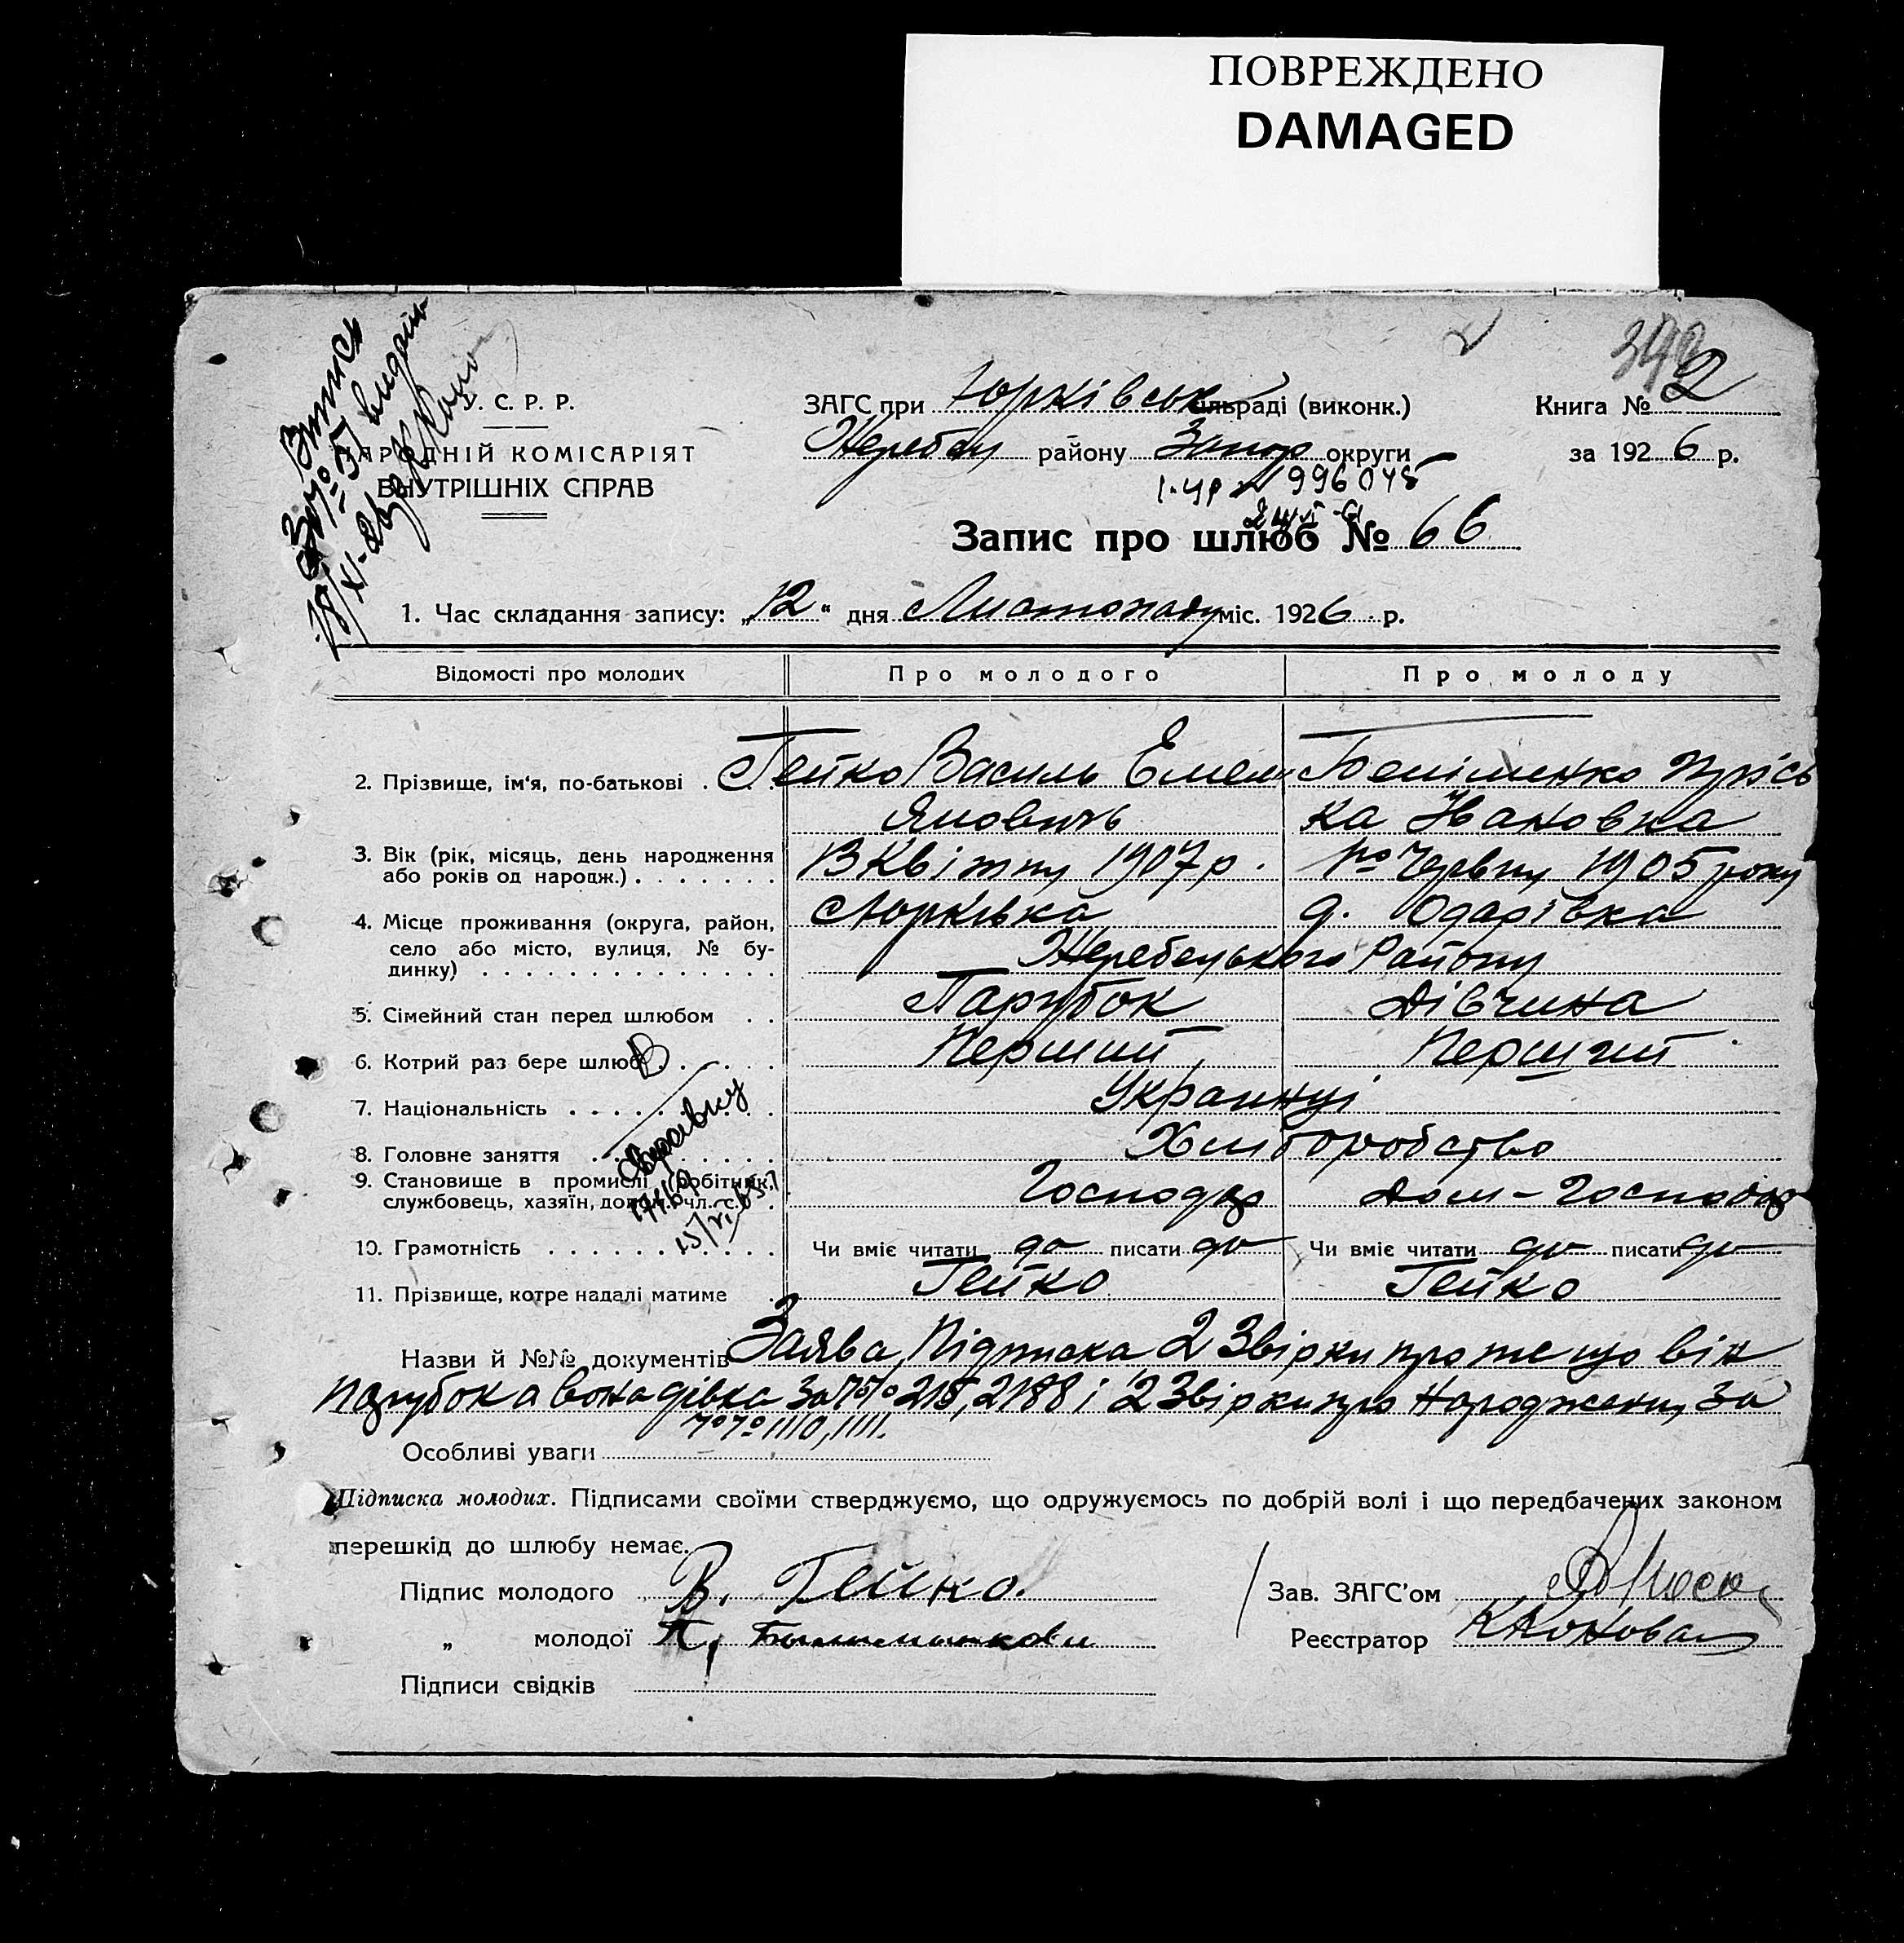 ПОВРЕЖДЕНО
DAMAGED
342
У. С. Р. Р.
НАРОДНІЙ КОМІСАРІЯТ
ВНУТРІШНІХ СПРАВ
ЗАГС при Юрківськ сільраді (виконк.)
Жеребец району Запор округи
Книга № 2
за 1926 р.
Запис про шлюб № 66
1. Час складання запису: „12“ дня Листопаду міс. 1926 р.
Відомості про молодих Про молодого Про молоду
2. Прізвище, ім'я, по-батькові Гейко Василь Емел Прісь
яновичь ка Ивановна
3. Вік (рік, місяць, день народження
або років од народж.) 13 Квітну 1907 р. 1го Червну 1905 року
4. Місце проживання (округа, район, Юрківка д. Одарівка
село або місто, вулиця, № бу-
динку) Жеребецького Району
5. Сімейний стан перед шлюбом Парубок Дівчина
6. Котрий раз бере шлюб Перший Перший
7. Національність Украинці
8. Головне заняття Хлиборобство
9. Становище в промислі (робітник,
службовець, хазяїн, допом. чл. с.) Господар Дом-Господар
10. Грамотність Чи вміє читати да писати да Чи вміє читати да писати да
11. Прізвище, котре надалі матиме Гейко Гейко
Назви й №№ документів Заява, Підписка 2 Звірки про те що він
парубок а вона дівка за №№ 215, 2188 і 2 Звірки про Народжену за
№№ 1110, 1111.
Особливі уваги
Підписка молодих. Підписами своїми стверджуємо, що одружуємось по добрій волі і що передбачених законом
перешкід до шлюбу немає.
Підпис молодого В. Гейко. Зав. ЗАГС'ом
„ молодої П. Реєстратор ККоновал
Підписи свідків